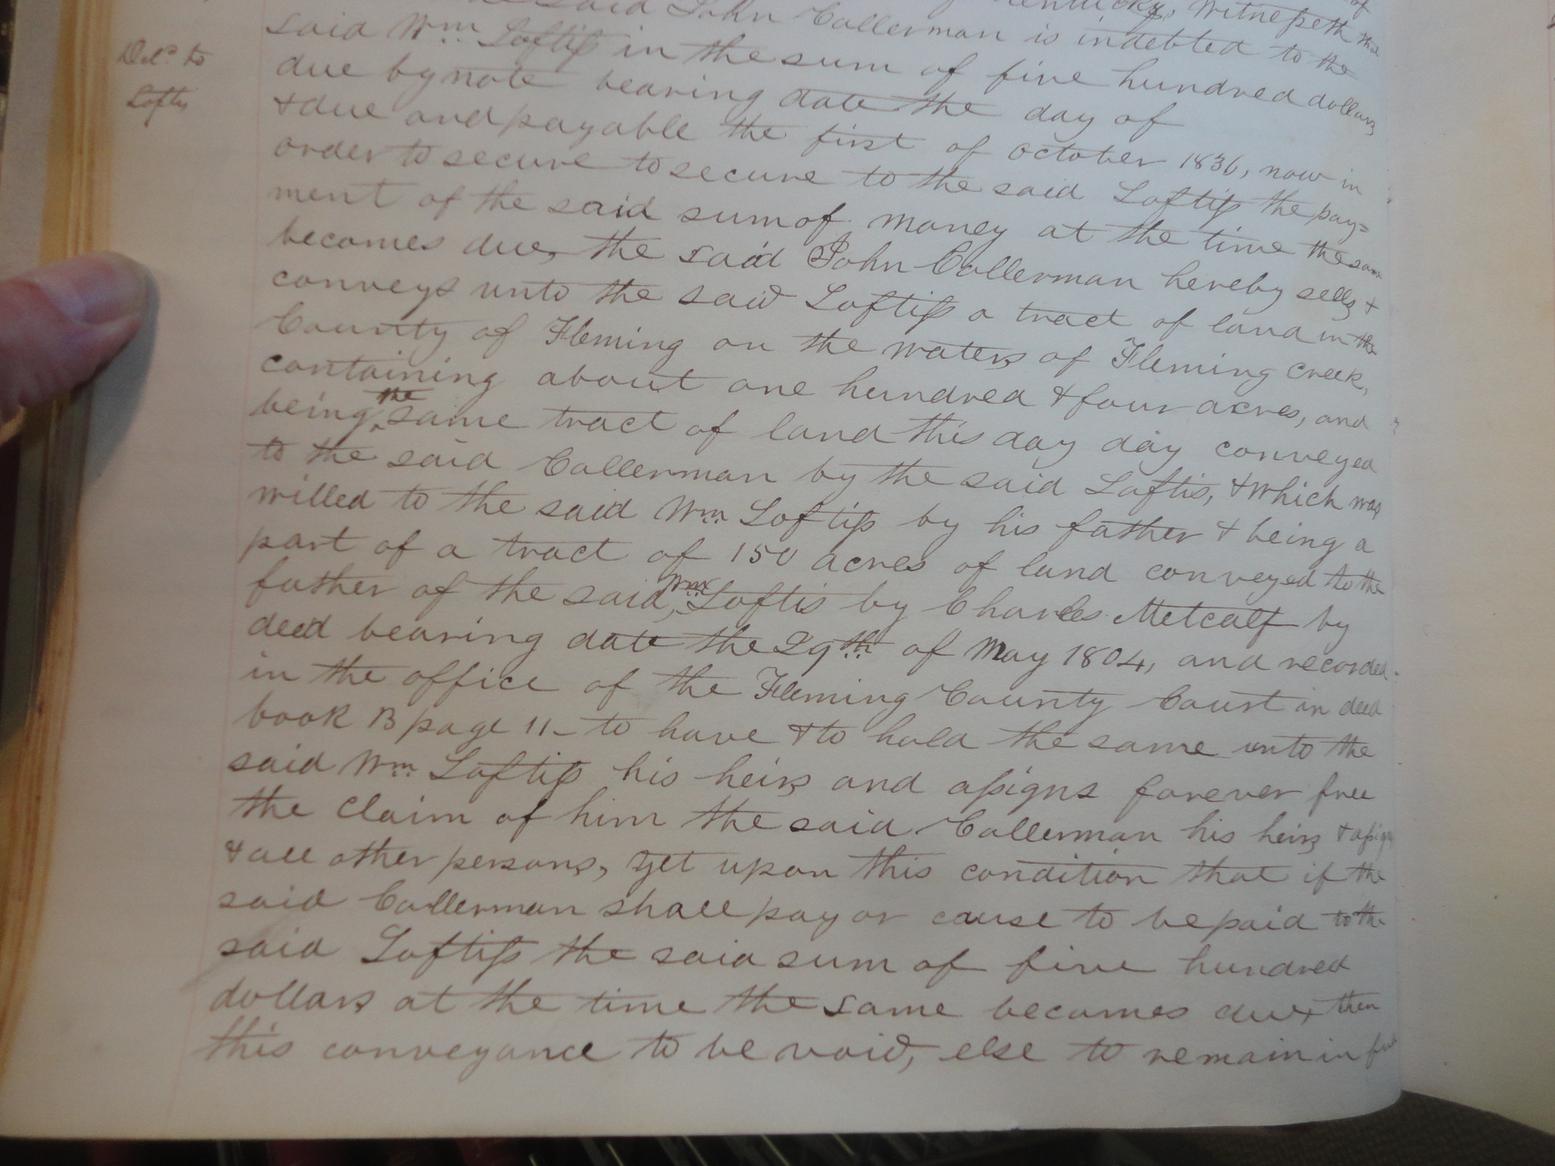 of Kentucky, Witnesseth that
said John Collerman is indebted to the
said Wm Loftiss in the sum of five hundred dollars
due by note bearing date the day of
& due and payable the first of October 1836, now in
order to secure to secure to the said Loftiss the pay=
ment of the said sum of money at the time the same
becomes due, the said John Collerman hereby sells &
conveys unto the said Loftiss a tract of land in the
County of Fleming on the waters of Fleming Creek,
containing about one hundred & four acres, and
being the same tract of land this day day conveyed
to the said Collerman by the said Loftis, & which was
willed to the said Wm Loftiss by his father & being a
part of a tract of 150 acres of land conveyed to the
father of the said Wm Loftis by Charles Metcalf by
deed bearing date the 29th of May 1804, and recorded
in the office of the Fleming County Court in deed
book B page 11 – to have & to hold the same unto the
said Wm Loftiss his heirs and assigns forever free
the claim of him the said Collerman his heirs & assigns
& all other persons, yet upon this condition that if the
said Collerman shall pay or cause to be paid to the
said Loftiss the said sum of five hundred
dollars at the time the same becomes due, then
this conveyance to be void, else to remain in
Deld to
Loftis